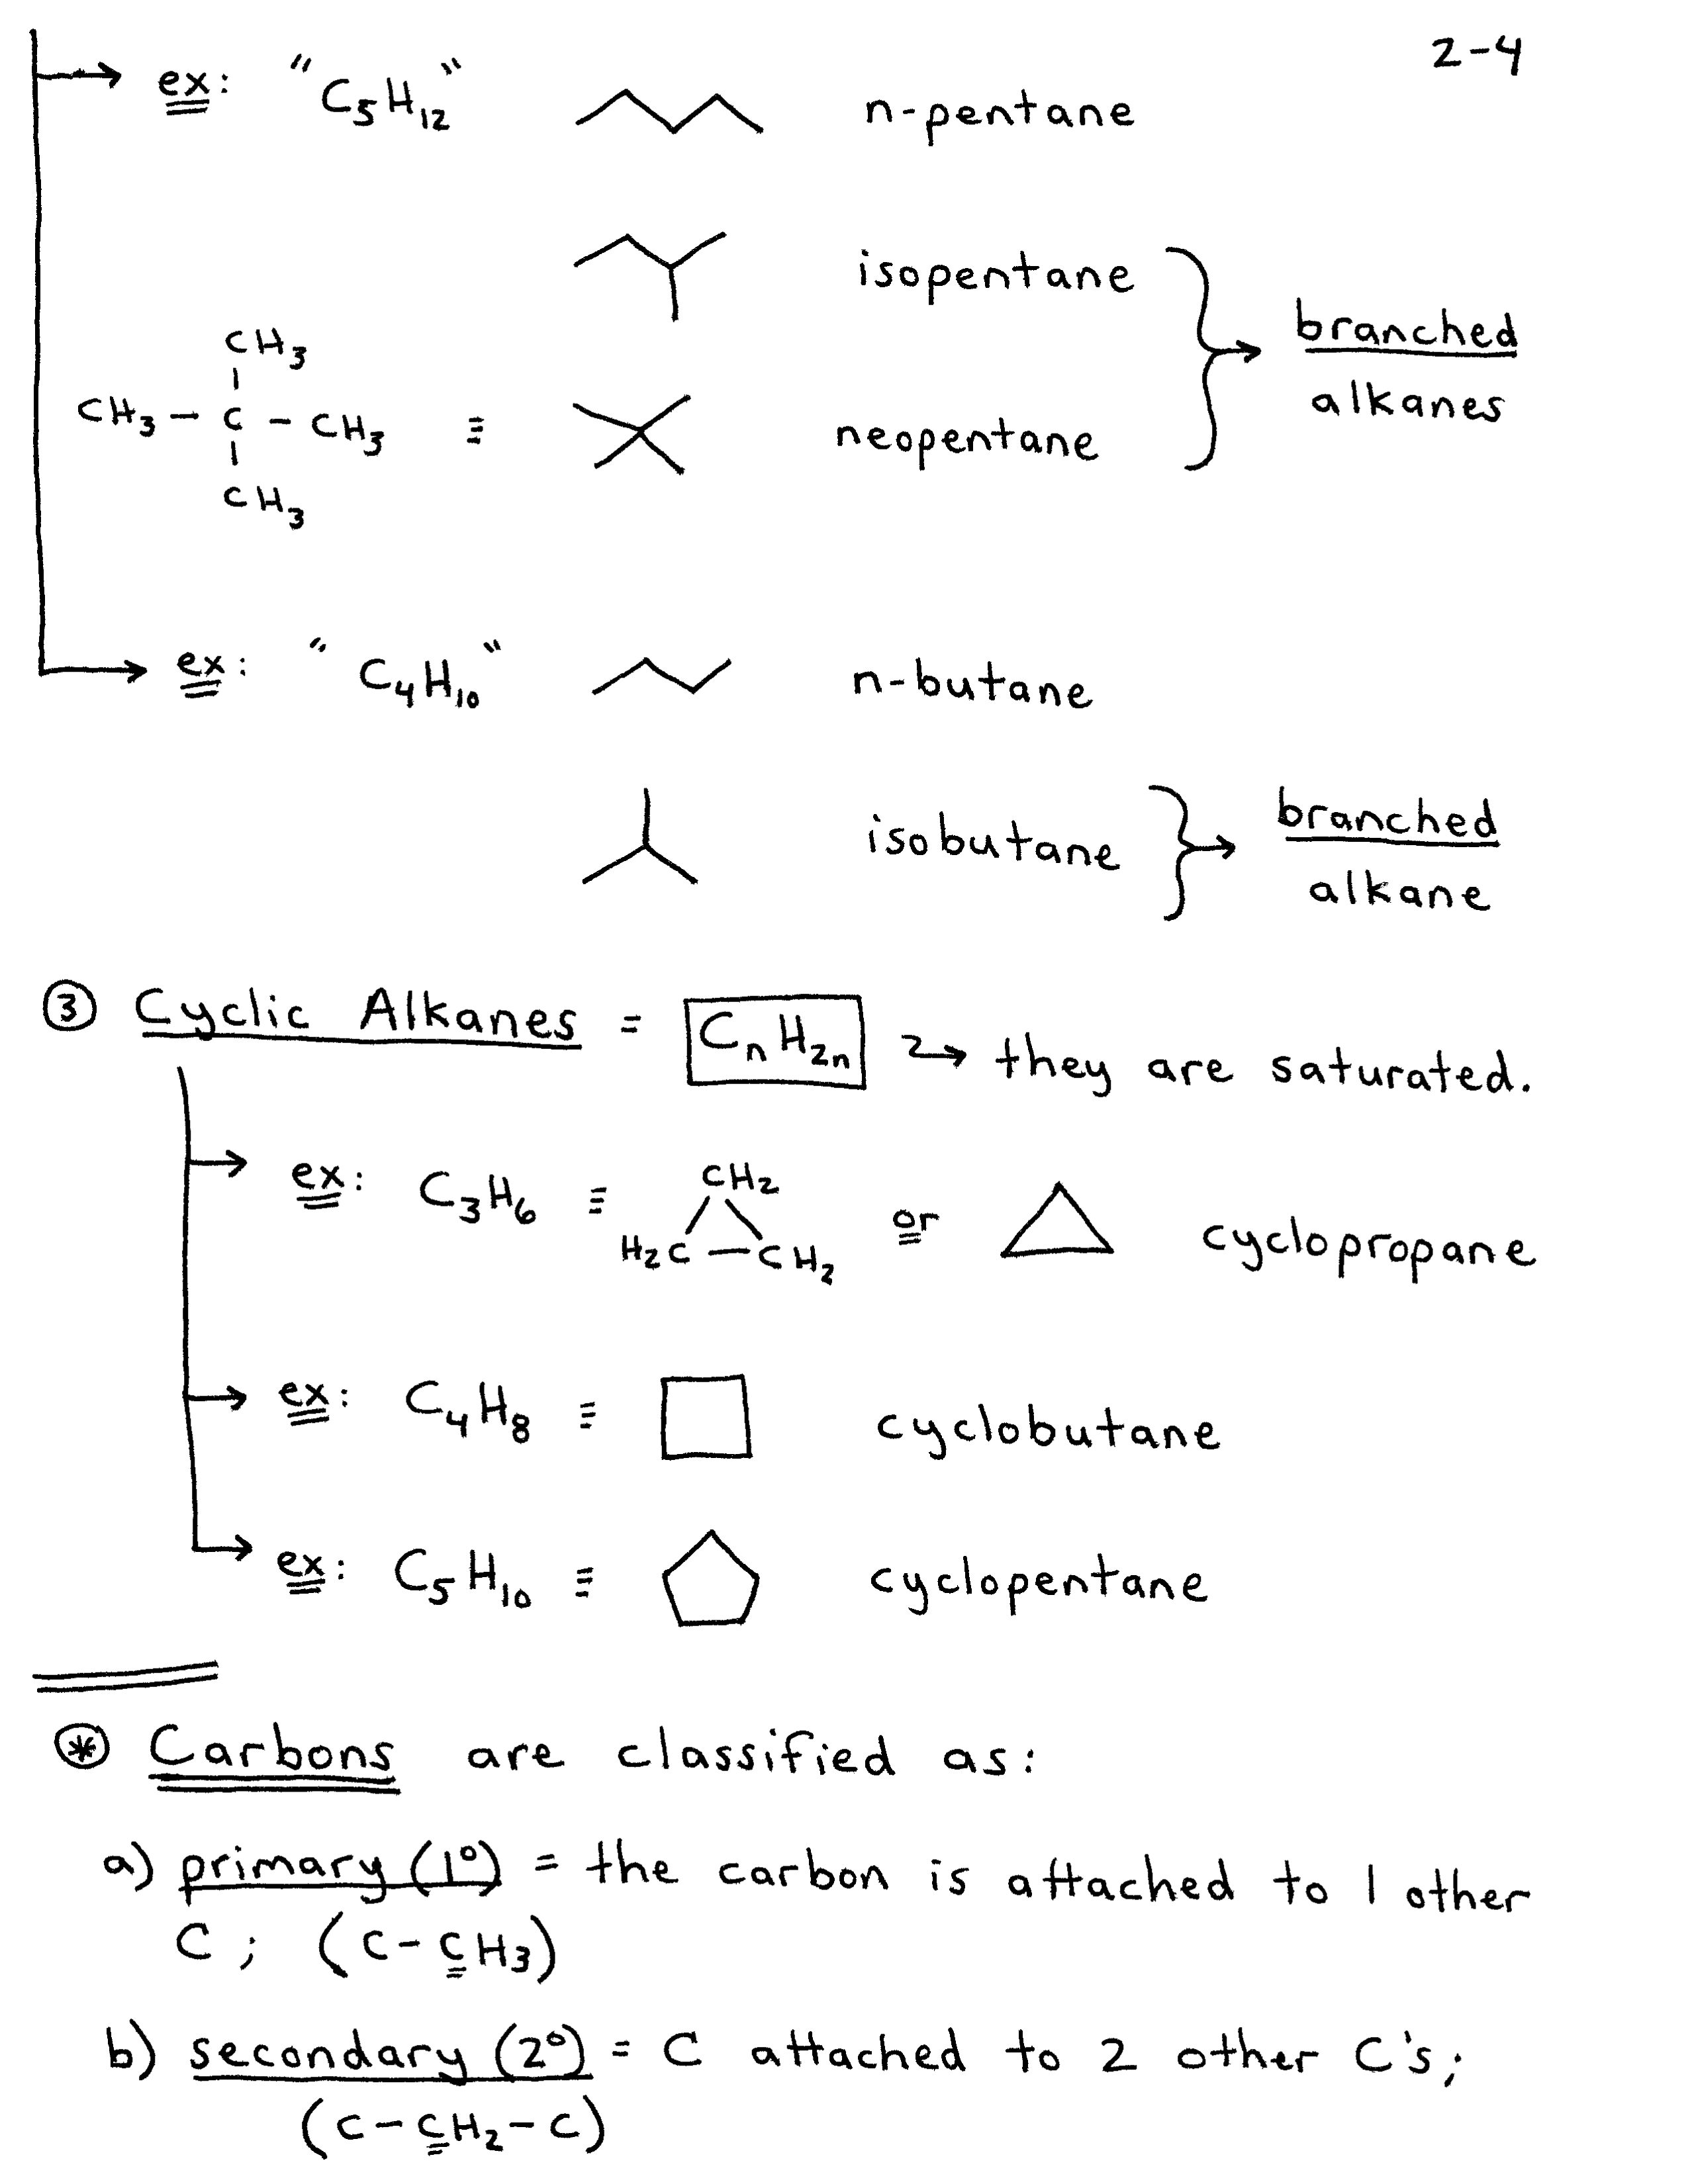 2-4
ex: "C5H12" n-pentane
isopentane
branched
alkanes
CH3
CH3 - C - CH3 ≡ neopentane
CH3
ex: "C4H10" n-butane
isobutane
branched
alkane
③ Cyclic Alkanes = CnH2n → they are saturated.
ex: C3H6 ≡ CH2 H2C - CH2 or cyclopropane
ex: C4H8 ≡ cyclobutane
ex: C5H10 ≡ cyclopentane
⊛ Carbons are classified as:
a) primary (1°) = the carbon is attached to 1 other
C; (C-CH3)
b) secondary (2°) = C attached to 2 other C's;
(C-CH2-C)